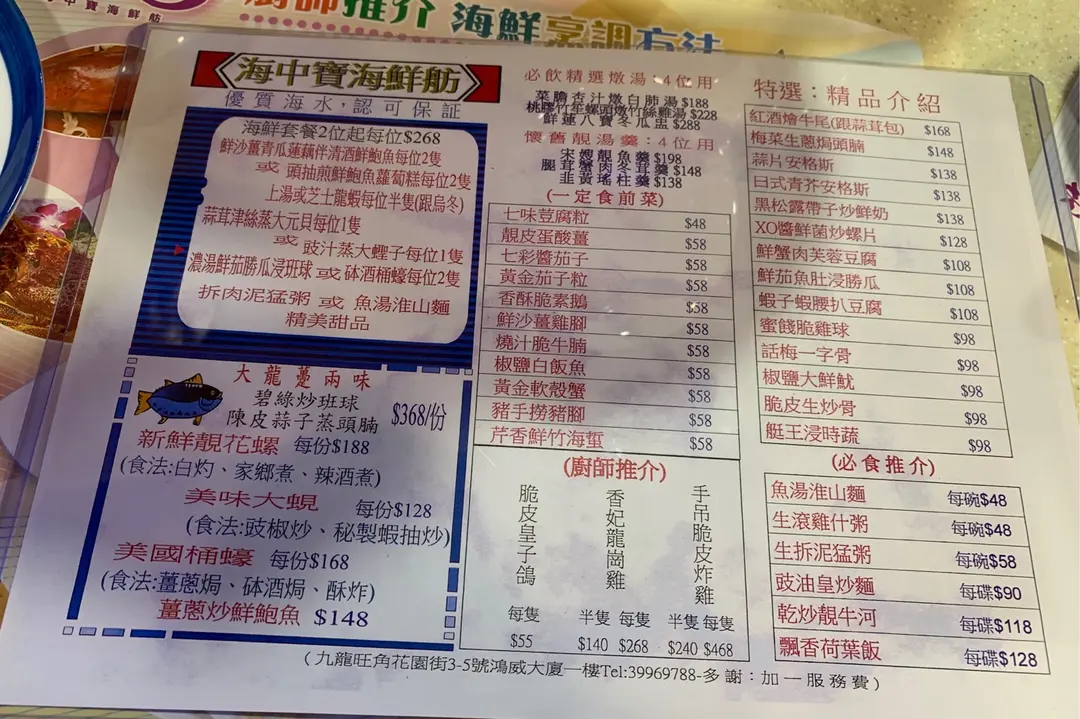 廚師推介 海鮮烹調方法
中寶海鮮舫
海中寶海鮮舫
優質海水,認可保証
海鮮套餐2位起每位$268
鮮沙薑青瓜蓮藕伴清酒鮮鮑魚每位2隻
或 頭抽煎鮮鮑魚蘿蔔糕每位2隻
上湯或芝士龍蝦每位半隻(跟烏冬)
蒜茸津絲蒸大元貝每位1隻
或 豉汁蒸大蟶子每位1隻
濃湯鮮茄勝瓜浸班球 或 砵酒桶蠔每位2隻
拆肉泥猛粥 或 魚湯淮山麵
精美甜品
大龍躉兩味
碧綠炒班球
陳皮蒜子蒸頭腩 $368/份
新鮮靚花螺 每份$188
(食法:白灼、家鄉煮、辣酒煮)
美味大蜆 每份$128
(食法:豉椒炒、秘製蝦抽炒)
美國桶蠔 每份$168
(食法:薑蔥焗、砵酒焗、酥炸)
薑蔥炒鮮鮑魚 $148
必飲精選燉湯:4位用
菜膽杏汁燉白肺湯 $188
桃膠竹笙螺頭燉竹絲雞湯 $228
鮮蓮八寶冬瓜盅 $288
懷舊靚湯羹:4位用
宋嫂靚魚羹 $198
腿茸蟹肉冬茸羹 $148
韭黃瑤柱羹 $138
(一定食前菜)
七味荳腐粒 $48
靚皮蛋酸薑 $58
七彩醬茄子 $58
黃金茄子粒 $58
香酥脆素鵝 $58
鮮沙薑雞腳 $58
燒汁脆牛腩 $58
椒鹽白飯魚 $58
黃金軟殼蟹 $58
豬手撈豬腳 $58
芹香鮮竹海蜇 $58
(廚師推介)
脆皮皇子鴿
每隻
$55
香妃龍崗雞
半隻 每隻
$140 $268
手吊脆皮炸雞
半隻 每隻
$240 $468
特選:精品介紹
紅酒燴牛尾(跟蒜茸包) $168
梅菜生蔥焗頭腩 $148
蒜片安格斯 $138
日式青芥安格斯 $138
黑松露帶子炒鮮奶 $138
XO醬鮮菌炒螺片 $128
鮮蟹肉芙蓉豆腐 $108
鮮茄魚肚浸勝瓜 $108
蝦子蝦腰扒豆腐 $108
蜜餞脆雞球 $98
話梅一字骨 $98
椒鹽大鮮魷 $98
脆皮生炒骨 $98
艇王浸時蔬 $98
(必食推介)
魚湯淮山麵 每碗$48
生滾雞什粥 每碗$48
生拆泥猛粥 每碗$58
豉油皇炒麵 每碟$90
乾炒靚牛河 每碟$118
飄香荷葉飯 每碟$128
(九龍旺角花園街3-5號鴻威大廈一樓Tel:39969788-多謝:加一服務費)